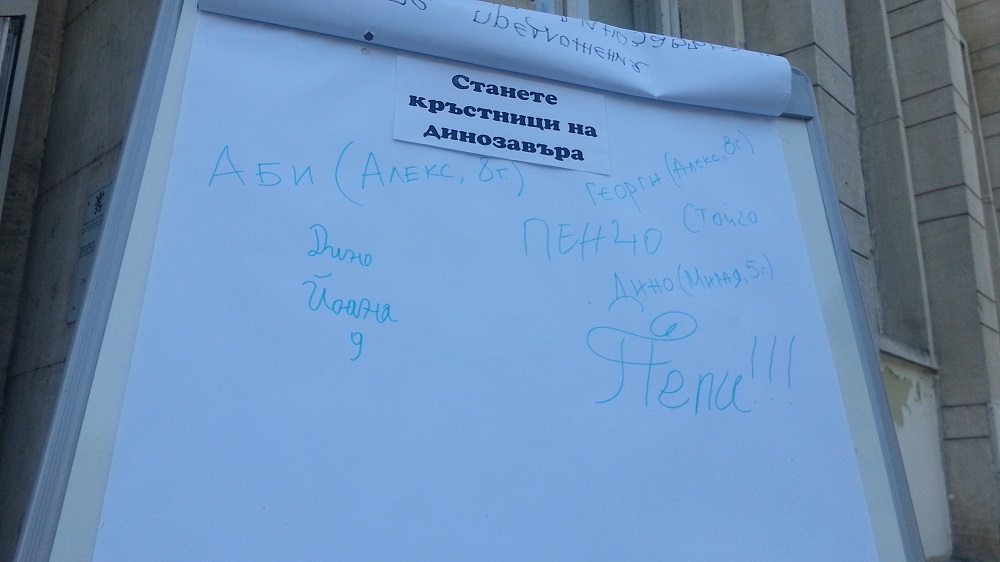 предложения
Станете
кръстници на
динозавъра
АБИ (АЛЕКС, 8г.)
ГЕОРГИ (АЛЕКС, 8г.)
ПЕНЧО
Стойго
Дино
Йоана
9
ДИНО (МИЛНЯ, 5г.)
Пепи!!!